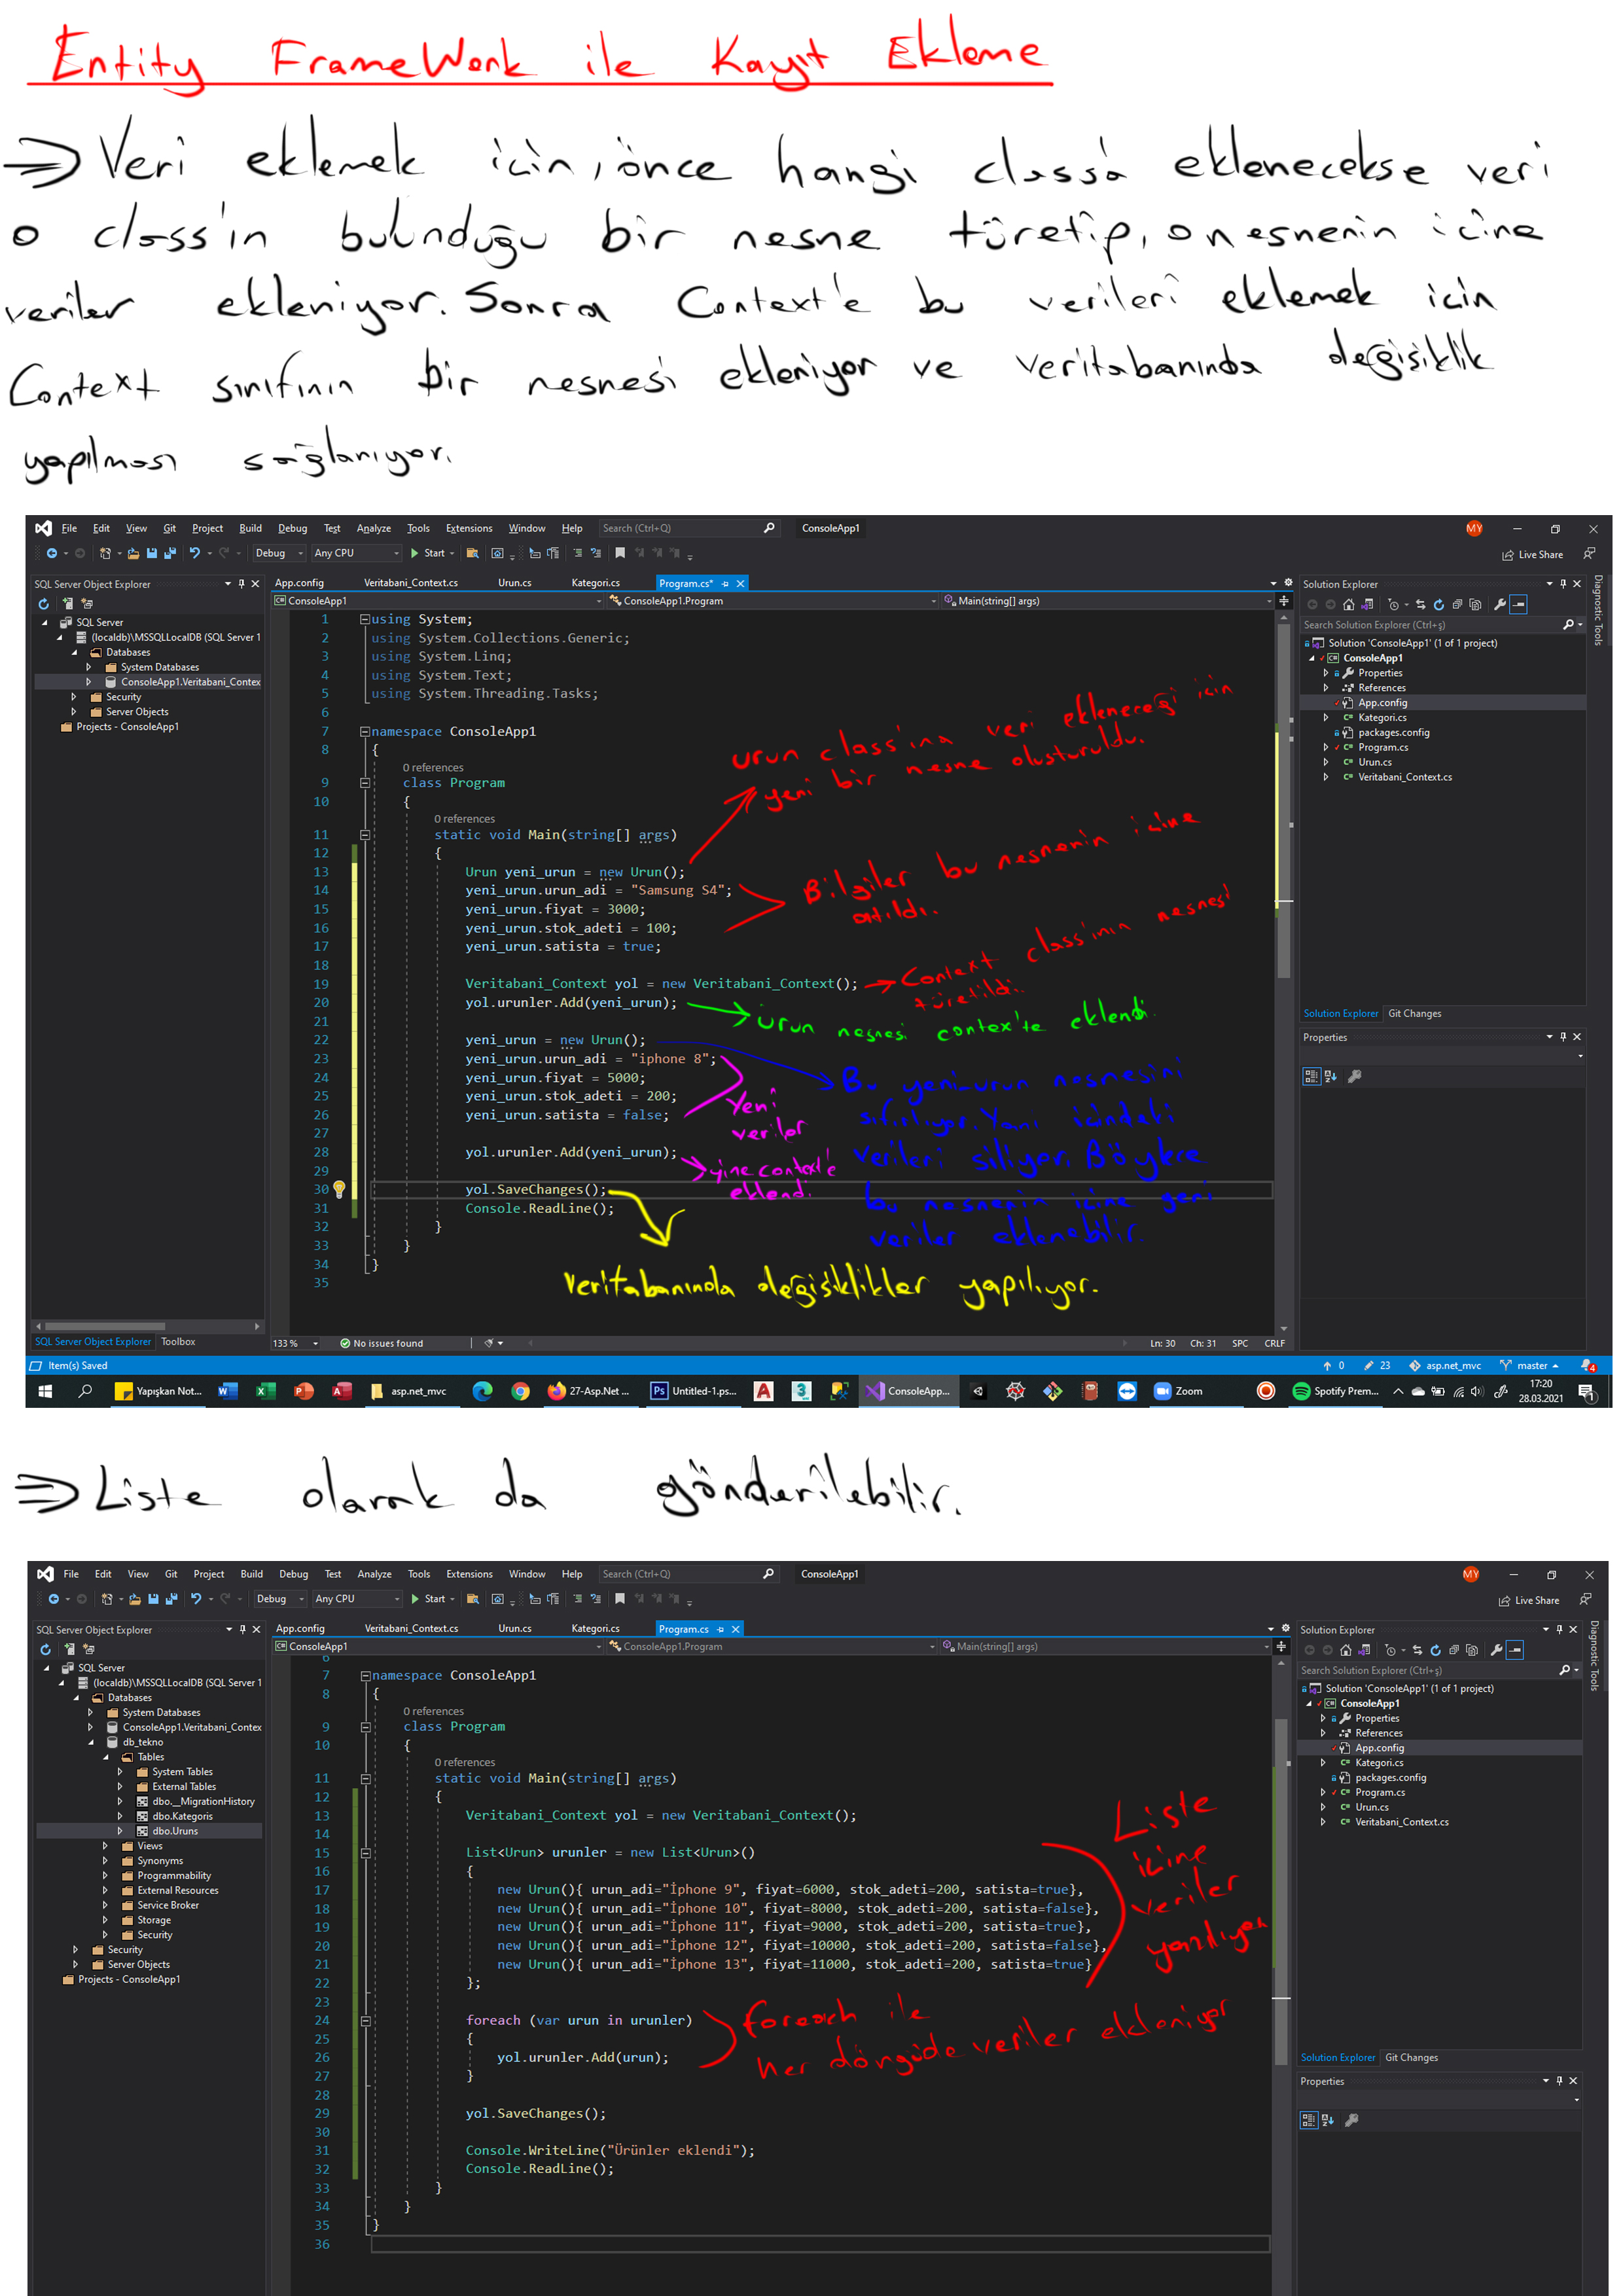 Entity FrameWork ile Kayıt Ekleme
⇒ Veri eklemek için, önce hangi class'a eklenecekse veri
o class'ın bulunduğu bir nesne türetip, o nesnenin içine
veriler ekleniyor. Sonra Context'e bu verileri eklemek için
Context sınıfının bir nesnesi ekleniyor ve veritabanında değişiklik
yapılması sağlanıyor.
File Edit View Git Project Build Debug Test Analyze Tools Extensions Window Help Search (Ctrl+Q) ConsoleApp1 MY
Debug Any CPU Start Live Share
SQL Server Object Explorer
SQL Server
(localdb)\MSSQLLocalDB (SQL Server 1
Databases
System Databases
ConsoleApp1.Veritabani_Contex
Security
Server Objects
Projects - ConsoleApp1
SQL Server Object Explorer Toolbox
App.config Veritabani_Context.cs Urun.cs Kategori.cs Program.cs*
ConsoleApp1 ConsoleApp1.Program Main(string[] args)
1 using System;
2 using System.Collections.Generic;
3 using System.Linq;
4 using System.Text;
5 using System.Threading.Tasks;
6
7 namespace ConsoleApp1
8 {
0 references
9 class Program
10 {
0 references
11 static void Main(string[] args)
12 {
13 Urun yeni_urun = new Urun();
14 yeni_urun.urun_adi = "Samsung S4";
15 yeni_urun.fiyat = 3000;
16 yeni_urun.stok_adeti = 100;
17 yeni_urun.satista = true;
18
19 Veritabani_Context yol = new Veritabani_Context();
20 yol.urunler.Add(yeni_urun);
21
22 yeni_urun = new Urun();
23 yeni_urun.urun_adi = "iphone 8";
24 yeni_urun.fiyat = 5000;
25 yeni_urun.stok_adeti = 200;
26 yeni_urun.satista = false;
27
28 yol.urunler.Add(yeni_urun);
29
30 yol.SaveChanges();
31 Console.ReadLine();
32 }
33 }
34 }
35
urun class'ına veri ekleneceği için
yeni bir nesne oluşturuldu.
Bilgiler bu nesnenin içine
atıldı.
Context class'ının nesnesi
türetildi.
ürun nesnesi contex'te eklendi.
Bu yeni_urun nesnesini
sıfırlıyor. Yani içindeki
verileri siliyor. Böylece
bu nesnenin içine yeni
veriler eklenebilir.
Yeni
veriler
yine context'e
eklendi.
Veritabanında değişiklikler yapılıyor.
133 % No issues found Ln: 30 Ch: 31 SPC CRLF
Solution Explorer
Search Solution Explorer (Ctrl+ş)
Solution 'ConsoleApp1' (1 of 1 project)
ConsoleApp1
Properties
References
App.config
Kategori.cs
packages.config
Program.cs
Urun.cs
Veritabani_Context.cs
Solution Explorer Git Changes
Properties
Diagnostic Tools
Item(s) Saved 0 23 asp.net_mvc master 4
Yapışkan Not... asp.net_mvc 27-Asp.Net ... Untitled-1.ps... ConsoleApp... Zoom Spotify Prem... 17:20
28.03.2021
⇒ Liste olarak da gönderilebilir.
File Edit View Git Project Build Debug Test Analyze Tools Extensions Window Help Search (Ctrl+Q) ConsoleApp1 MY
Debug Any CPU Start Live Share
SQL Server Object Explorer
SQL Server
(localdb)\MSSQLLocalDB (SQL Server 1
Databases
System Databases
ConsoleApp1.Veritabani_Contex
db_tekno
Tables
System Tables
External Tables
dbo.__MigrationHistory
dbo.Kategoris
dbo.Uruns
Views
Synonyms
Programmability
External Resources
Service Broker
Storage
Security
Security
Server Objects
Projects - ConsoleApp1
App.config Veritabani_Context.cs Urun.cs Kategori.cs Program.cs
ConsoleApp1 ConsoleApp1.Program Main(string[] args)
6
7 namespace ConsoleApp1
8 {
0 references
9 class Program
10 {
0 references
11 static void Main(string[] args)
12 {
13 Veritabani_Context yol = new Veritabani_Context();
14
15 List<Urun> urunler = new List<Urun>()
16 {
17 new Urun(){ urun_adi="İphone 9", fiyat=6000, stok_adeti=200, satista=true},
18 new Urun(){ urun_adi="İphone 10", fiyat=8000, stok_adeti=200, satista=false},
19 new Urun(){ urun_adi="İphone 11", fiyat=9000, stok_adeti=200, satista=true},
20 new Urun(){ urun_adi="İphone 12", fiyat=10000, stok_adeti=200, satista=false},
21 new Urun(){ urun_adi="İphone 13", fiyat=11000, stok_adeti=200, satista=true}
22 };
23
24 foreach (var urun in urunler)
25 {
26 yol.urunler.Add(urun);
27 }
28
29 yol.SaveChanges();
30
31 Console.WriteLine("Ürünler eklendi");
32 Console.ReadLine();
33 }
34 }
35 }
36
Liste
içine
veriler
yazılıyor
foreach ile
her döngüde veriler ekleniyor
Solution Explorer
Search Solution Explorer (Ctrl+ş)
Solution 'ConsoleApp1' (1 of 1 project)
ConsoleApp1
Properties
References
App.config
Kategori.cs
packages.config
Program.cs
Urun.cs
Veritabani_Context.cs
Solution Explorer Git Changes
Properties
Diagnostic Tools